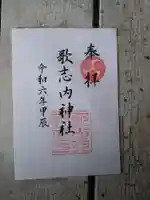 奉拝
歌志内神社
令和六年甲辰